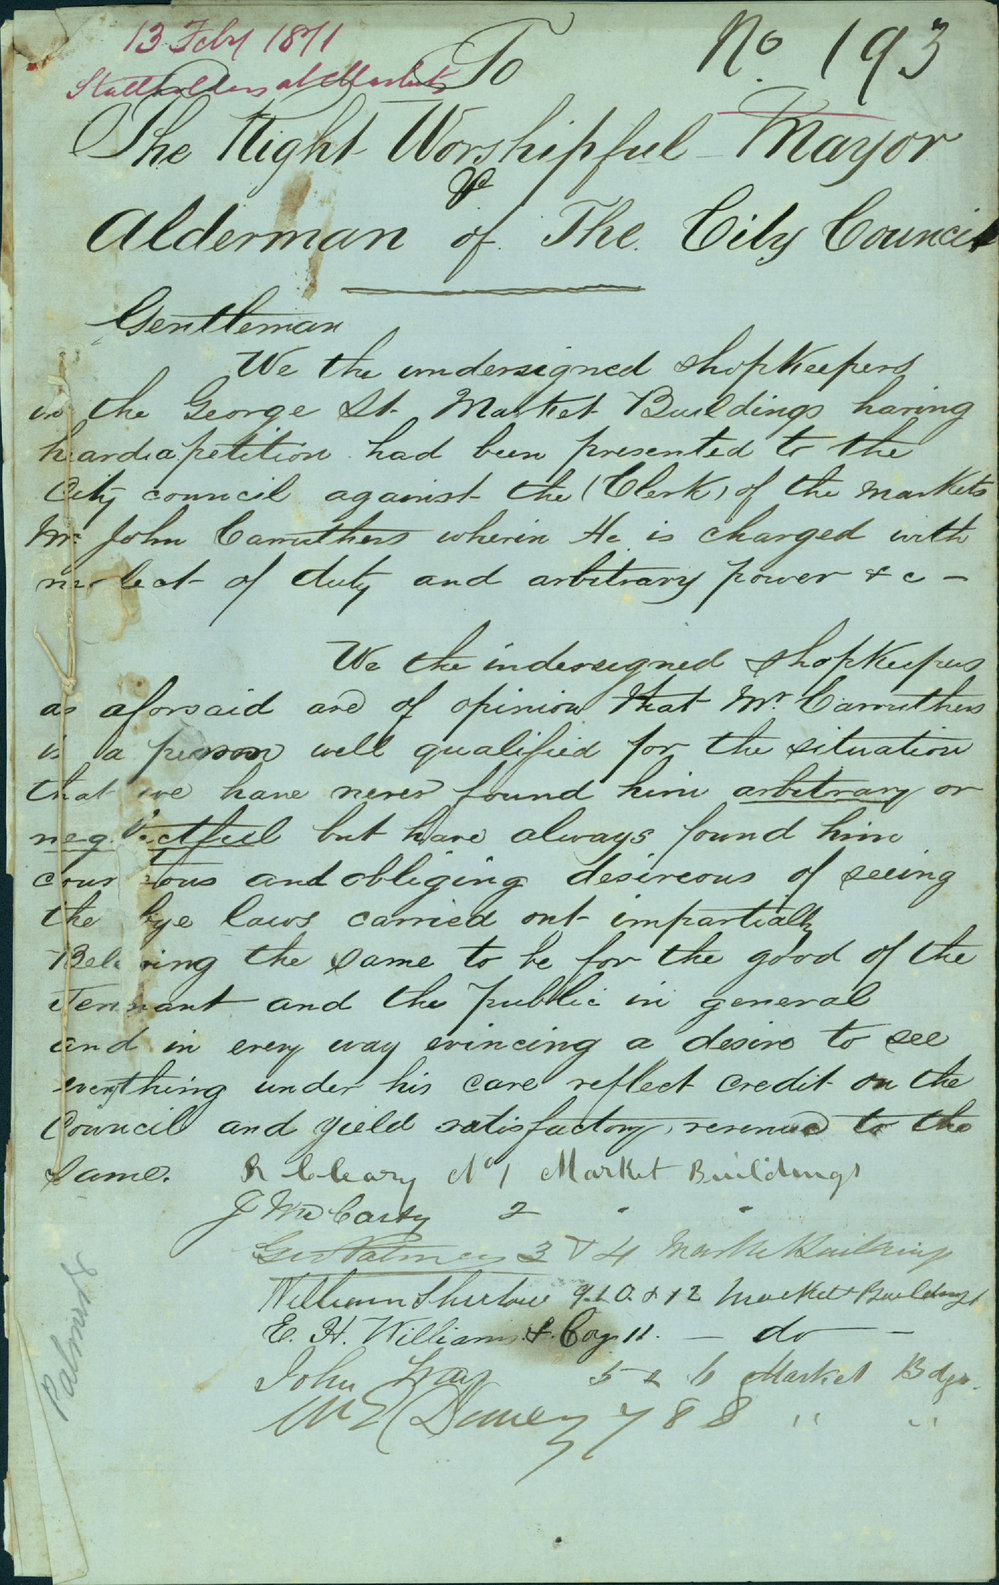 13 Feby 1871
Stallholders at Markets
To
No. 193
The Right Worshipful Mayor
&
Alderman of The City Council
Gentleman
We the undersigned shopkeepers
in the George St. Market Buildings having
heard a petition had been presented to the
City council against the (Clerk) of the markets
Mr John Carruthers wherin He is charged with
neglect of duty and arbitrary power & c –
We the indersigned shopkeepers
as aforsaid are of opinion that Mr. Carruthers
is a person well qualified for the situation
that we have never found him arbitrary or
neglectfull but have always found him
courteous and obliging desireous of seeing
the bye laws carried out impartially
Beleiving the same to be for the good of the
Tennant and the public in general
and in every way evincing a desire to see
everything under his care reflect credit on the
Council and yield satisfactory revenue to the
same.
R Cleary No 1 Market Buildings
J McCarty 2 " "
Geo Palmer 3 & 4 Market Building
William 9.10. & 12 Market Buildings
E. H. Williams & Coy 11. – do –
John 5 & 6 Market Bdgs.
7 & 8 " "
Palmer &